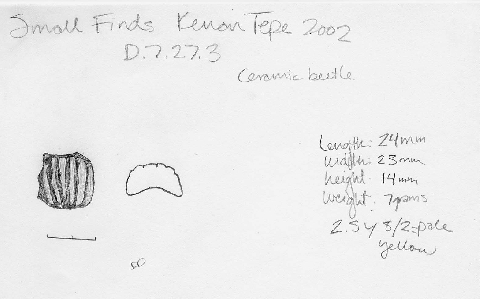 Small Finds Kenan Tepe 2002
D.7.27.3
Ceramic beetle
Length: 24mm
Width: 23mm
height: 14mm
Weight: 7grams
2.5y 8/2-pale
yellow